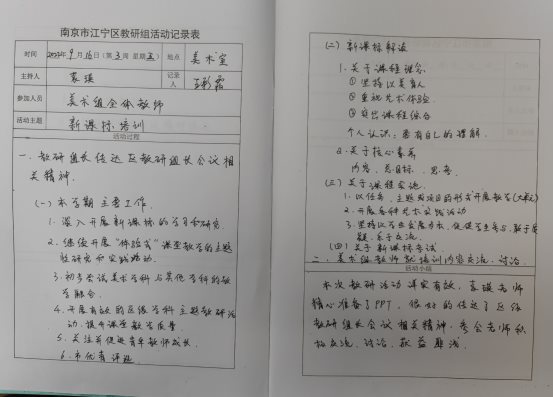 南京市江宁区教研组活动记录表
时间 2022年9月16日(第3周 星期五) 地点 美术室
主持人 袁琪 记录人
参加人员 美术组全体教师
活动主题 新课标培训
活动过程
一、教研组长传达区教研组长会议相
关精神.
(一)本学期主要工作.
1. 深入开展新课标的学习和研究
2. 继续开展“体验式”课堂教学的主题
性研究和实践活动.
3. 初步尝试美术学科与其他学科的教
学融合.
4. 开展有效的区级学科主题教研活
动,提升课堂教学质量.
5. 关注并促进青年教师成长.
6. 市优青评选
(二)新课标解读
1. 关于课程理念
①坚持以美育人
②重视艺术体验.
③突出课程综合
个人认识:要有自己的理解.
2. 关于核心素养
内容、总目标、思考.
(三)关于课程实施.
1. 以任务、主题或项目的形式开展教学(大单元)
2. 开展各种艺术实践活动
3. 坚持以学生发展为本,促使学生参与、敢于质
疑、乐于交流.
(四)关于新课标考试.
二、美术组教师就培训内容交流、讨论.
活动小结
本次教研活动详实有效,袁琪老师
精心准备了PPT,很好的传达了区级
教研组长会议相关精神,参会老师积
极交流、讨论,获益匪浅.